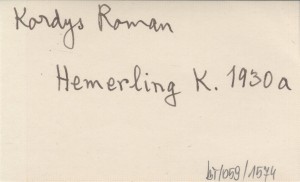 Kordys Roman
Hemerling K. 1930a
br/059/1574